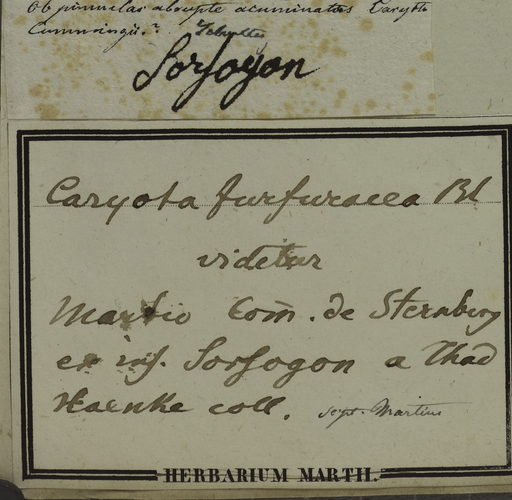 Ob pinnulas abrupte acuminatas Caryota
Cummingii?
Sorsogon
Caryota furfuracea Bl
videtur
Martio Com. de Sternberg
ex ins. Sorsogon a Thad
Haenke coll. scrps. Martius
HERBARIUM MARTII.